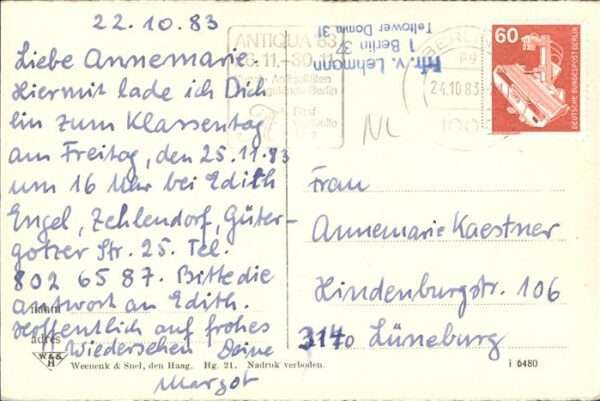 22.10.83
Liebe Annemarie.
Hiermit lade ich Dich
ein zum Klassentag
am Freitag, den 25.11.83
um 16 Uhr bei Edith
Engel, Zehlendorf, Güter-
gotzer Str. 25. Tel.
802 65 87. Bitte die
Antwort an Edith.
Hoffentlich auf frohes
Wiedersehen Deine
Margot
naam
adres
W & S
H
Weenenk & Snel, den Haag. Hg. 21. Nadruk verboden.
i 6480
ANTIQUA '83
30.11.
Berlin
v. Lehmann
1 Berlin 37
Teltower Damm 31
BERLIN
24.10.83
NL
60
DEUTSCHE BUNDESPOST BERLIN
Frau
Annemarie Kaestner
Hindenburgstr. 106
3140 Lüneburg